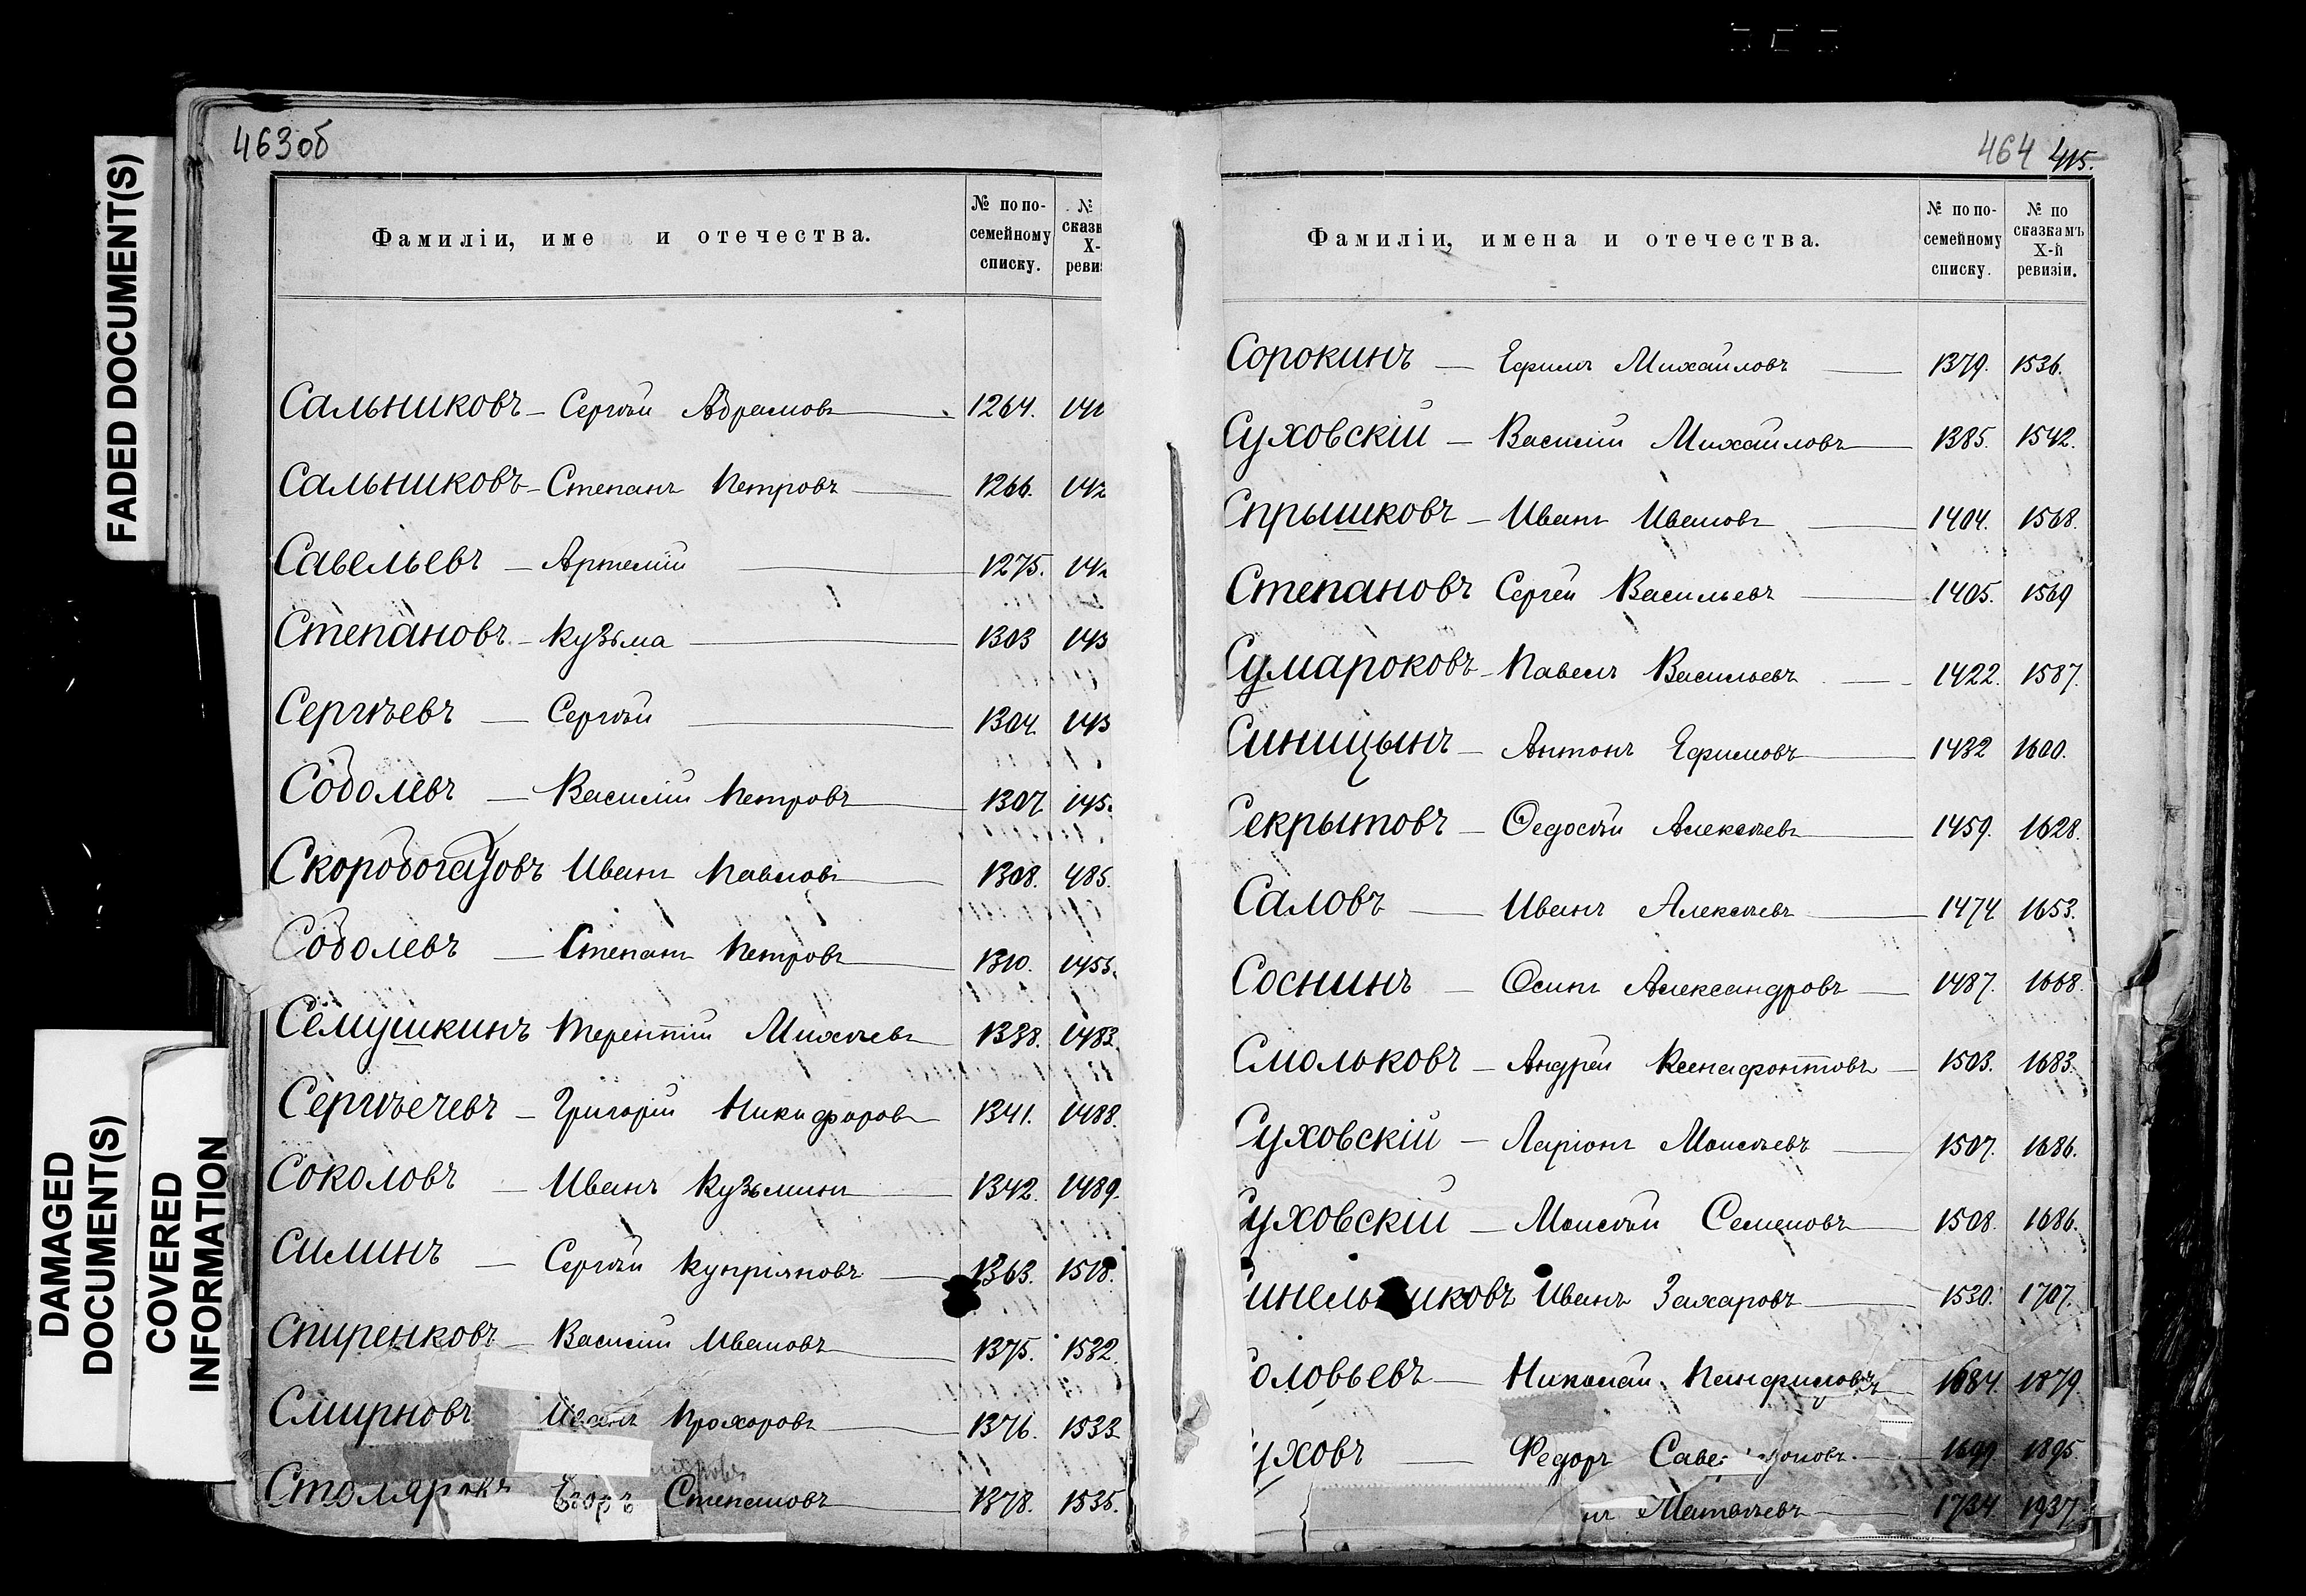 463об
FADED DOCUMENT(S)
DAMAGED DOCUMENT(S)
COVERED INFORMATION
Фамиліи, имена и отечества. № по по- №
семейному сказк
Х-
списку. ревиз
Сальниковъ – Сергѣй Абрамовъ 1264. 141
Сальниковъ – Степанъ Петровъ 1266. 142
Савельевъ – Артемій 1275. 142
Степановъ – Кузьма 1303 145
Сергѣевъ – Сергѣй 1304. 145
Соболевъ – Василій Петровъ 1307. 145.
Скоробогатовъ Иванъ Павловъ 1308. 485.
Соболевъ – Степанъ Петровъ 1310. 1455.
Сёмушкинъ Терентій Михѣевъ 1338. 1483.
Сергѣечевъ – Григорій Никифоровъ 1341. 1488.
Соколовъ – Иванъ Кузьминъ 1342. 1489.
Силинъ – Сергѣй Купріяновъ 1363. 1518.
Спиренковъ – Василій Ивановъ 1375. 1532.
Смирновъ Иванъ Прохоровъ 1376. 1533.
Столяровъ Егоръ Степановъ 1378. 1535.
464 415.
Фамиліи, имена и отечества. № по по- № по
семейному сказкамъ
Х-й
списку. ревизіи.
Сорокинъ – Ефимъ Михайловъ 1379. 1536.
Суховскій – Василій Михайловъ 1385. 1542.
Спрышковъ – Иванъ Ивановъ 1404. 1568.
Степановъ Сергѣй Васильевъ 1405. 1569
Сумароковъ – Павелъ Васильевъ 1422. 1587.
Синицынъ – Антонъ Ефимовъ 1432 1600.
Секрытовъ – Ѳедосѣй Алексѣевъ 1459. 1628.
Саловъ – Иванъ Алексѣевъ 1474. 1653.
Соснинъ – Осипъ Александровъ 1487. 1668.
Смольковъ – Андрей Ксенафонтовъ 1503. 1683.
Суховскій – Ларіонъ Моисѣевъ 1507. 1686.
уховскій – Моисѣй Семеновъ 1508. 1686.
инельниковъ Иванъ Захаровъ 1530. 1707.
оловьевъ – Николай Панфиловъ 1684. 1879.
уховъ – Федоръ 1699 1895.
Матвѣевъ 1734 1937.